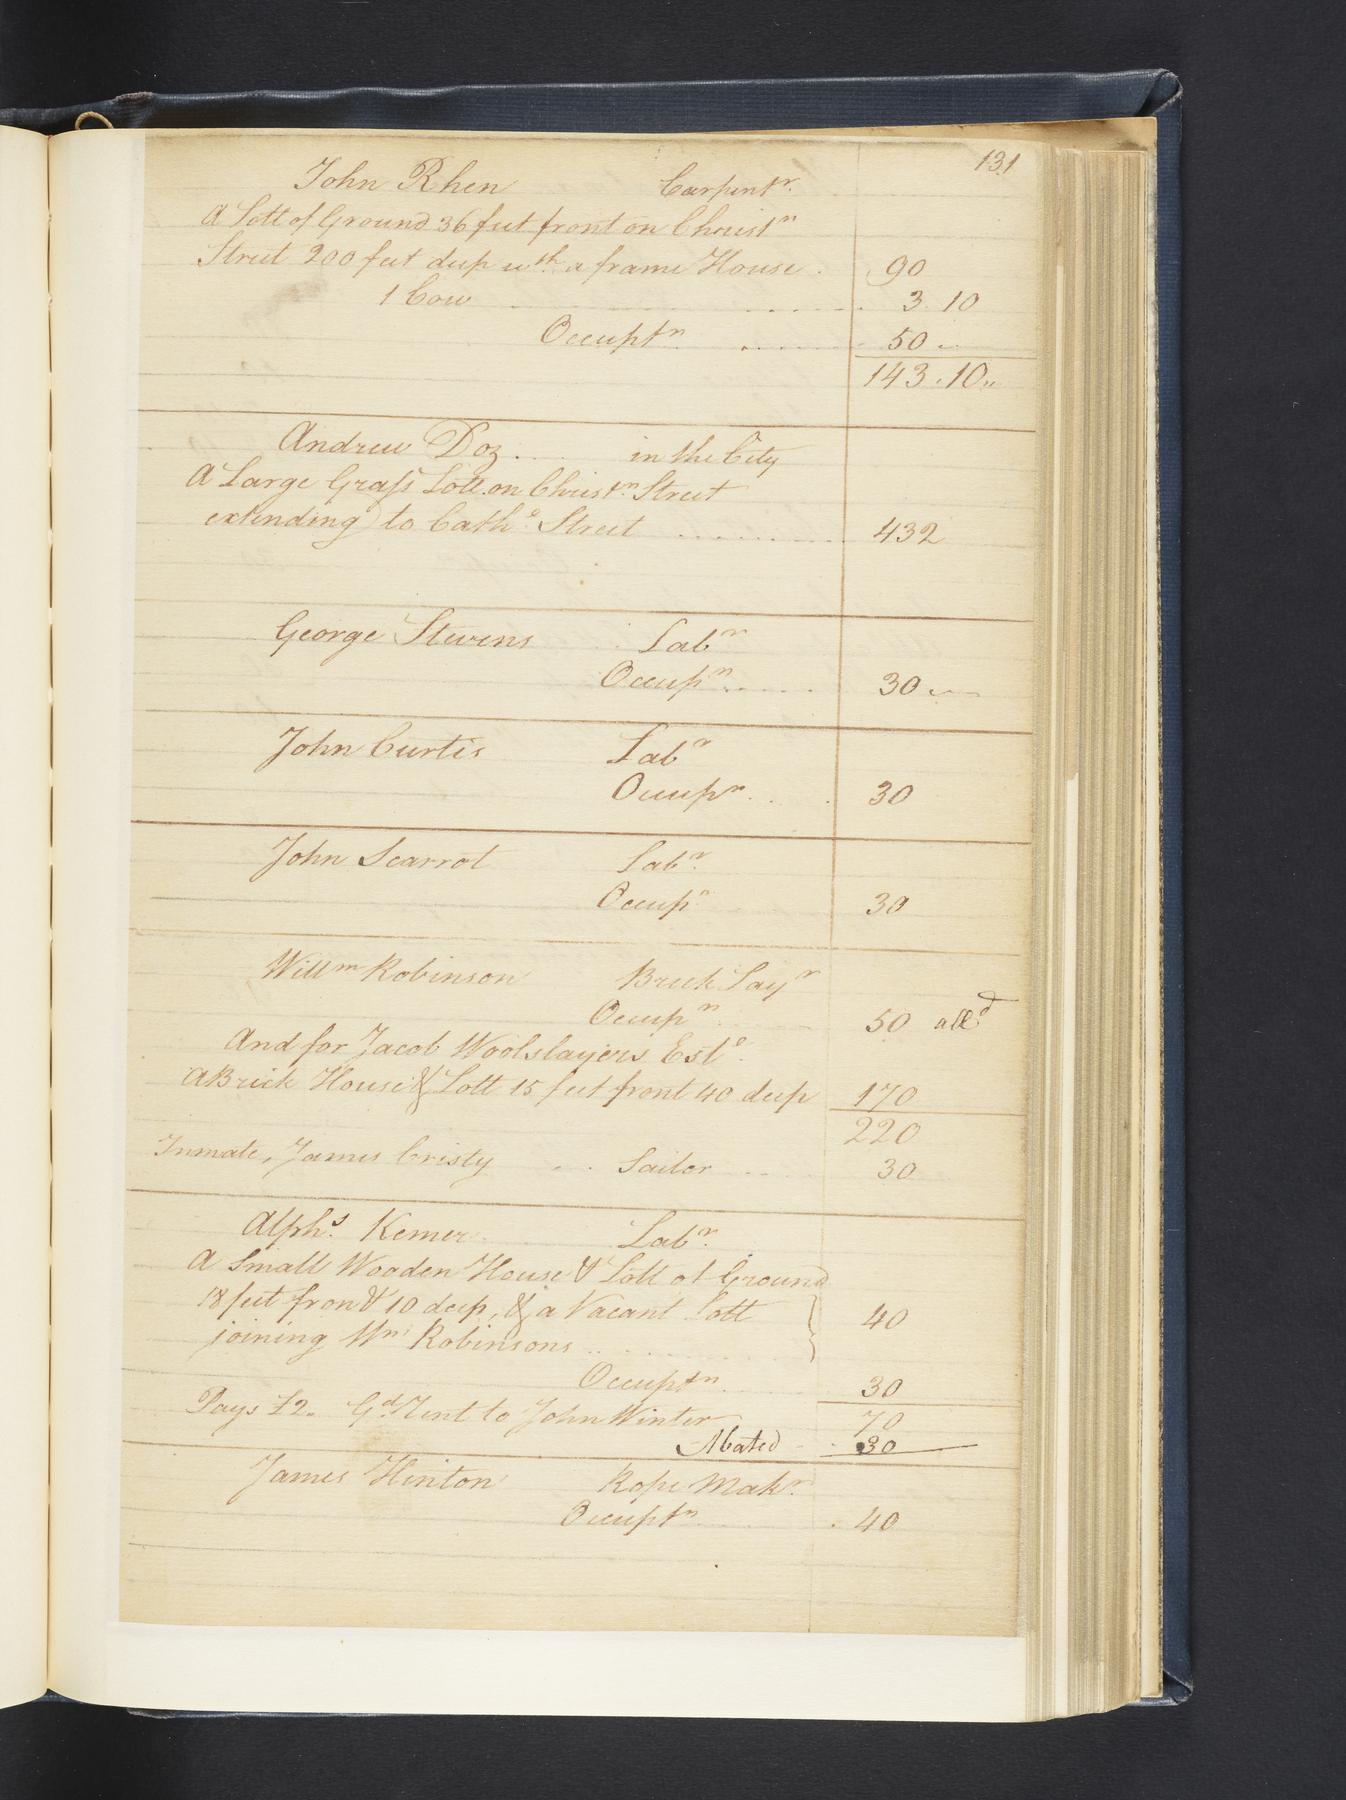 131
John Rhen Carpentr.
A Lott of Ground 36 feet front on Christn
Street 200 feet deep wth a frame House . 90
1 Cow 3. 10
Occuptn 50
143. 10
Andrew Doz in the City
A Large Grass Lott on Christn Street
extending to Cathe Street 432
George Stevens Labr
Occupn 30
John Curtis Labr
Occupn. 30
John Scarrot Labr.
Occupn 30
Willm Robinson Brick Layr
Occupn 50 alld
And for Jacob Woolslayers Este.
A Brick House & Lott 15 feet front 40 deep 170
220
Inmate, James Cristy Sailor 30
Alphs. Kemer Labr.
A Small Wooden House & Lott of Ground
18 feet front & 10 deep, & a Vacant Lott 40
joining Wm Robinsons
Occuptn 30
Pays £2. Gd Rent to John Winter 70
Abated 30
James Hinton Rope Makr.
Occuptn 40